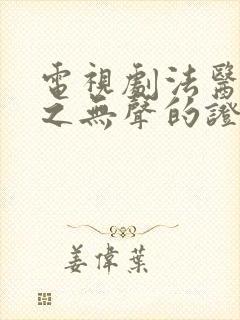 電視劇法醫
之無聲的證
姜偉葉